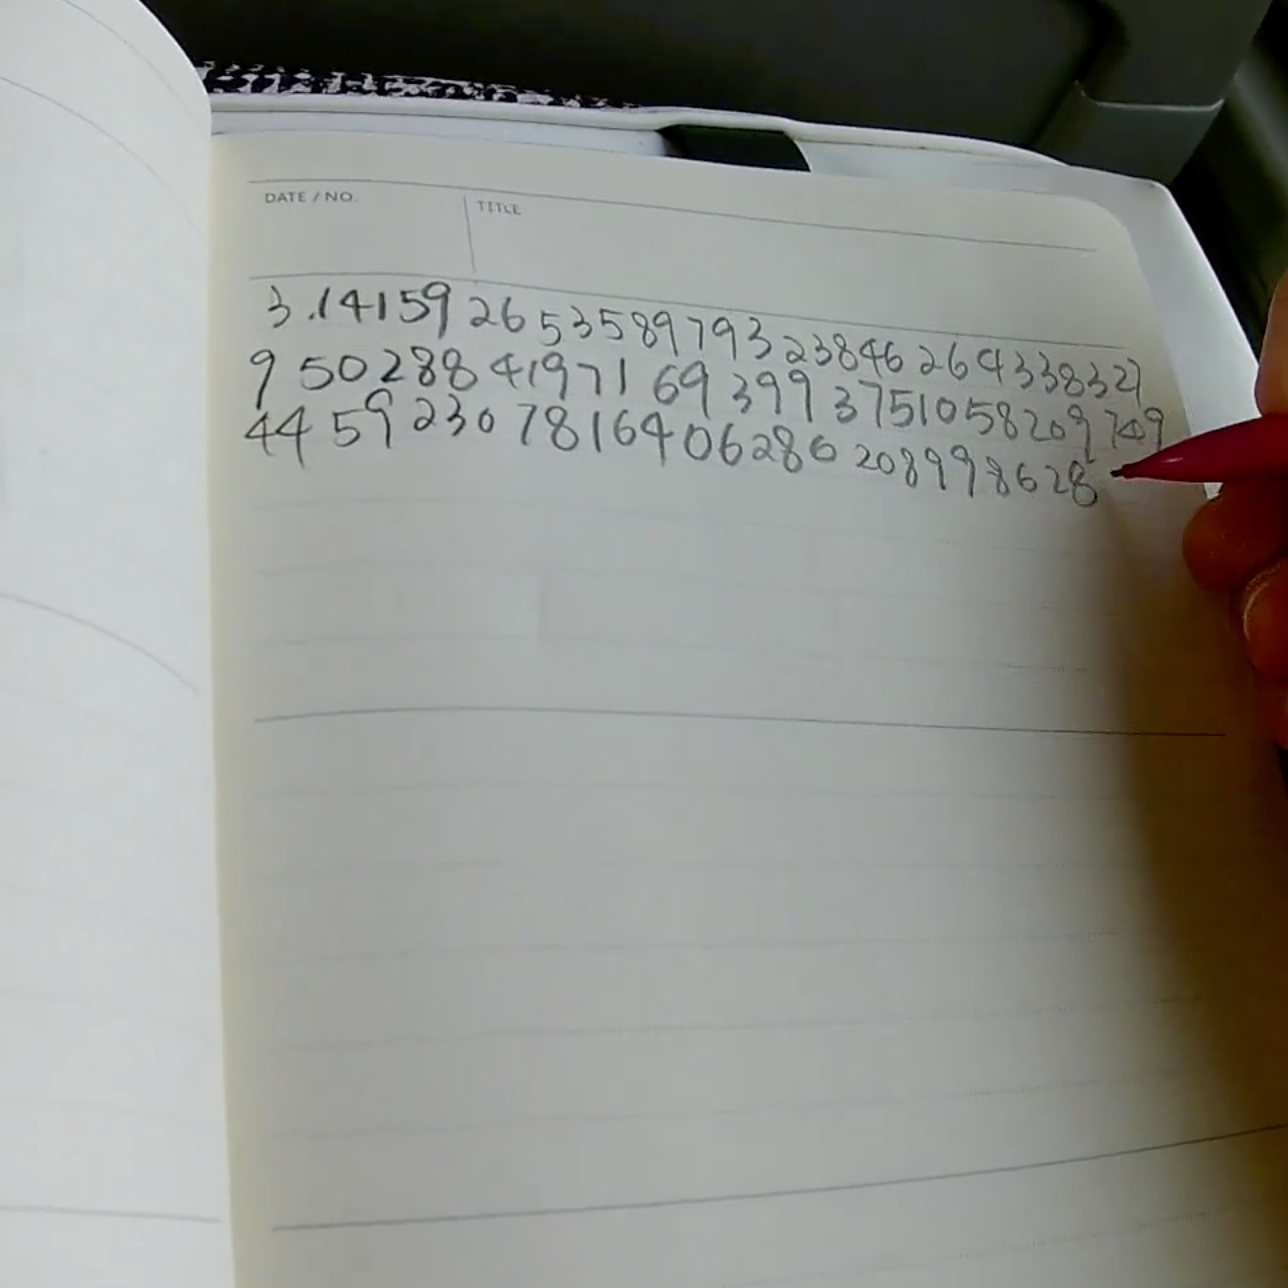 DATE / NO.
TITLE
3.14159 26 53589793 23846 264338327
9 50288 41971 69 399 37510 58209 749
44 59 230 78164 06286 208998628